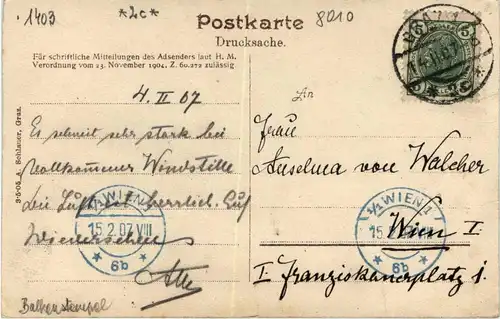 1403
*2c*
8010
Postkarte
Drucksache.
Für schriftliche Mitteilungen des Adsenders laut H. M.
Verordnung vom 23. November 1904. Z. 60.272 zulässig
3-5-05 A. Schlauer, Graz.
4. II 07
Es schneit sehr stark bei
vollkommener Windstille
die Luft ist herrlich. Auf
Wiedersehen
An
Frau
Anselma von Walcher
Wien I
I. Franziskanerplatz 1.
1/1 WIEN 1
15.2.07.VIII
* 6b *
1/1 WIEN 1
15.2
* 6b *
5
Balkenstempel